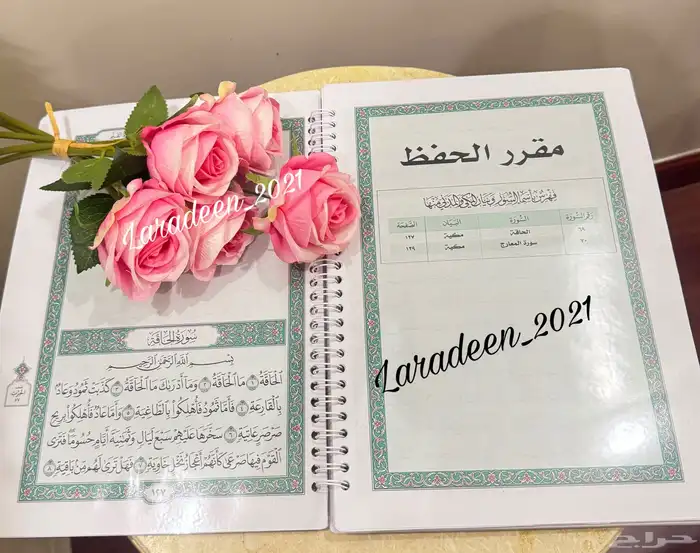 مقرر الحفظ
فهرس بأسماء السور وبيان المكي والمدني منها
رقم السورة السورة البيان الصفحة
٦٩ الحاقة مكية ١٢٧
٧٠ سورة المعارج مكية ١٢٩
Laradeen_2021
Laradeen_2021
سُورَةُ الحَاقَّةِ
بِسْمِ اللَّهِ الرَّحْمَٰنِ الرَّحِيمِ
الْحَاقَّةُ ١ مَا الْحَاقَّةُ ٢ وَمَا أَدْرَاكَ مَا الْحَاقَّةُ ٣ كَذَّبَتْ ثَمُودُ وَعَادٌ
بِالْقَارِعَةِ ٤ فَأَمَّا ثَمُودُ فَأُهْلِكُوا بِالطَّاغِيَةِ ٥ وَأَمَّا عَادٌ فَأُهْلِكُوا بِرِيحٍ
صَرْصَرٍ عَاتِيَةٍ ٦ سَخَّرَهَا عَلَيْهِمْ سَبْعَ لَيَالٍ وَثَمَانِيَةَ أَيَّامٍ حُسُومًا فَتَرَى
الْقَوْمَ فِيهَا صَرْعَىٰ كَأَنَّهُمْ أَعْجَازُ نَخْلٍ خَاوِيَةٍ ٧ فَهَلْ تَرَىٰ لَهُم مِّن بَاقِيَةٍ ٨
١٢٧
حراج